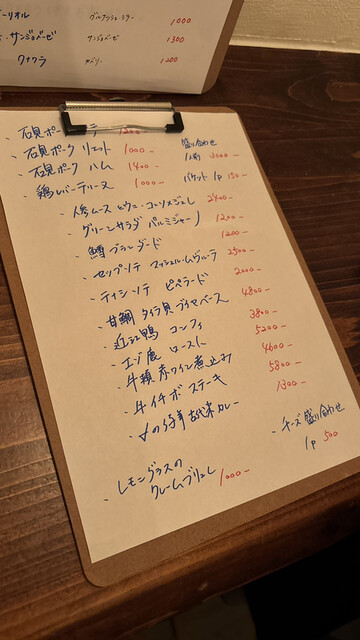 1000
サンジョベーゼ 1300
1200
石見ポー テ 1200
石見ポーク リエット 1000-
石見ポーク ハム 1400-
鶏レバーテリーヌ 1000-
盛り合わせ
1人前 2000-
バケット 1p 150-
人参ムース ウニ・コンソメジュレ 2400-
グリーンサラダ パルミジャーノ 1200-
鱈 ブランダード 1200-
セップソテ マッシュルームヴルーテ 2500-
ピペラード 2000-
甘鯛 タイラ貝 ブイヤベース 4800-
近江鴨 コンフィ 3800-
エゾ鹿 ロースト 5200-
牛頬 赤ワイン煮込み 4600-
牛イチボ ステーキ 5800-
〆の 古代米カレー 1300-
チーズ盛り合わせ
1p 500
レモングラスの
クレームブリュレ 1000-